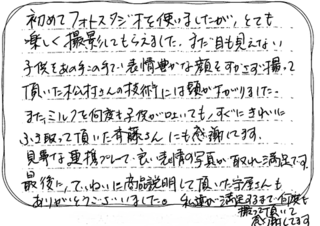 初めてフォトスタジオを使いましたが、とても
楽しく撮影してもらえました。まだ目も見えない
子供をあの手この手で表情豊かな顔をすかさず撮って
頂いた松村さんの技術には頭が下がりました。
また、ミルクを何度も子供がはいても、すぐにきれいに
ふき取って頂いた斉藤さんにも感謝してます。
見事な連携プレーで良い表情の写真が取れ満足です。
最後に、ていねいに商品説明して頂いた守屋さんも
ありがとうございました。私達が満足するまで何度も
撮って頂いて
感謝してます